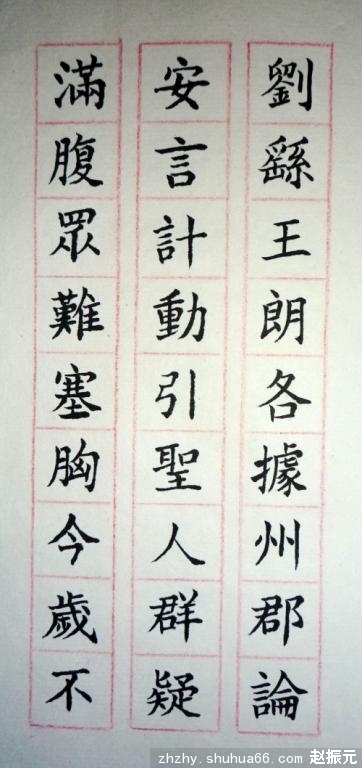 劉繇王朗各據州郡論
安言計動引聖人群疑
滿腹眾難塞胸今歲不
zhzhy.shuhua66.com 赵振元